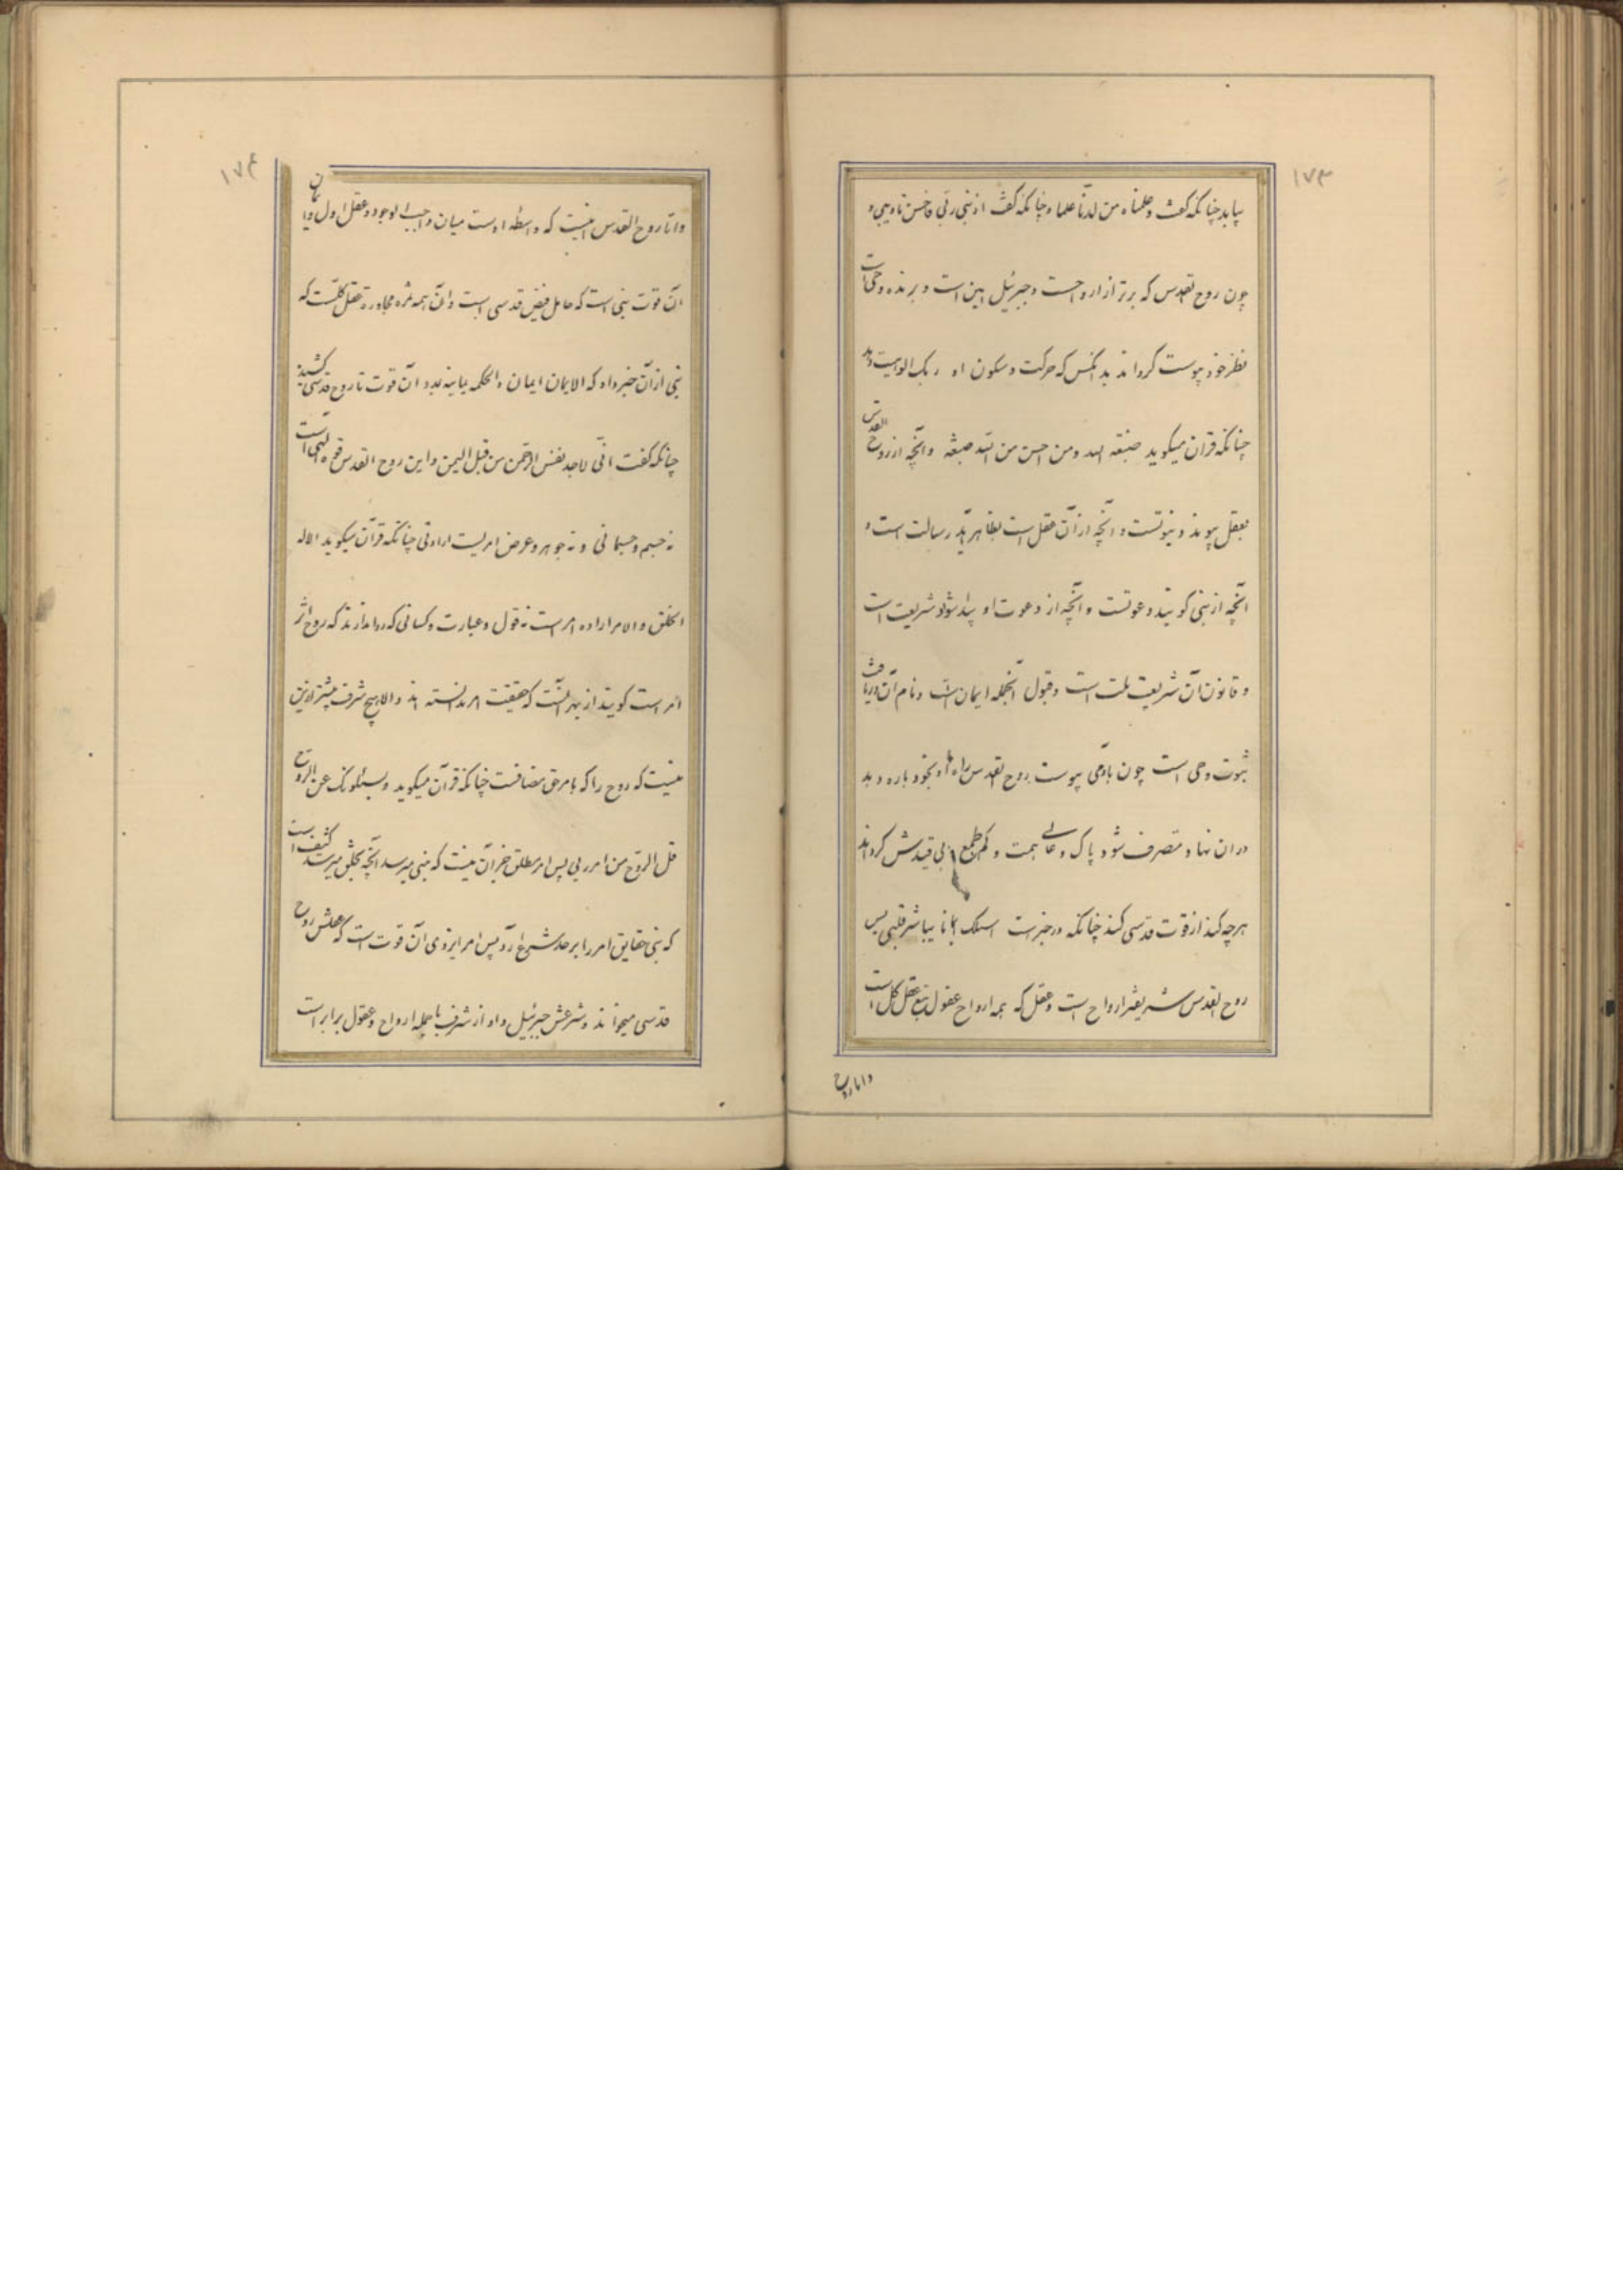 ۱۷۳
بیابد چنانکه گفت و علمناه من لدنا علما و چنانکه گفت ادبنی ربی فاحسن تادیبی و
چون روح القدس که برتر از ارواحست و جبرئیل امین است و برنده وحی است
نظر خود پیوست گرداند بدانکس که حرکت و سکون او رنگ الوهیت دهد
چنانکه قرآن میگوید صبغة الله ومن احسن من الله صبغة و آنچه از روح القدس
بعقل پیوندد نبوتست و آنچه از آن عقل است بظاهر آید رسالت است و
آنچه از نبی گویند دعوتست و آنچه از دعوت او پیدا شود شریعت است
و قانون آن شریعت ملت است و قبول آنجمله ایمان است و نام آن دریافت
نبوت وحی است چون بآدمی پیوست روح القدس راه او بخود باز دهد
در آن نهاد متصرف شود پاک و عالی همت و کم طمع و بی قیدش گرداند
هرچه کند از قوت قدسی کند چنانکه در خبر است اسئلک ایمانا یباشر قلبی پس
روح القدس شریفتر ارواح است و عقل که همه ارواح عقول تبع عقل کل است
واما روح
۱۷۴
واما روح القدس اینست که واسطه اوست میان واجب الوجود و عقل اول و با آن
آن قوت نبی است که حامل فیض قدسی است و آن همه ثمره مجاورت عقل کلیست که
نبی از آن خبر داد که الایمان ایمان والحکمه یمانیه بدو آن قوت تا روح قدسی کشید
چنانکه گفت انی لاجد نفس الرحمن من قبل الیمن و این روح القدس قوه الهی است
نه جسم و جسمانی و نه جوهر و عرض امریست ارادتی چنانکه قرآن میگوید الا له
الخلق و الامر اراده امر است نه قول و عبارت و کسانی که روا ندارند که روح اثر
امر است گویند از بهر آنست که حقیقت امر ندانسته اند و الا هیچ شرف بیشتر ازین
نیست که روح را که بامر حق مضافست چنانکه قرآن میگوید و یسئلونک عن الروح
قل الروح من امر ربی پس امر مطلق جز آن نیست که بنبی میرسد آنچه بخلق میرسد کثیف است
که نبی حقایق امر را بر حد شرع آرد پس امر ایزدی آن قوت است که عقلش روح
قدسی میخواند و شرعش جبرئیل و او از شرف با جمله ارواح و عقول برابر است